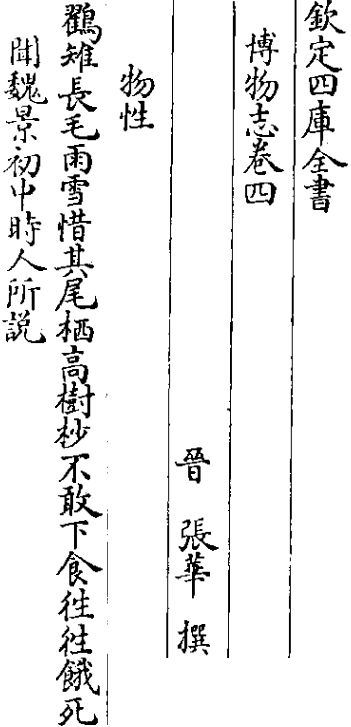 欽定四庫全書
博物志卷四
晉 張華 撰
物性
鸐雉長毛雨雪惜其尾栖高樹杪不敢下食徃徃餓死
聞魏景初中時人所説